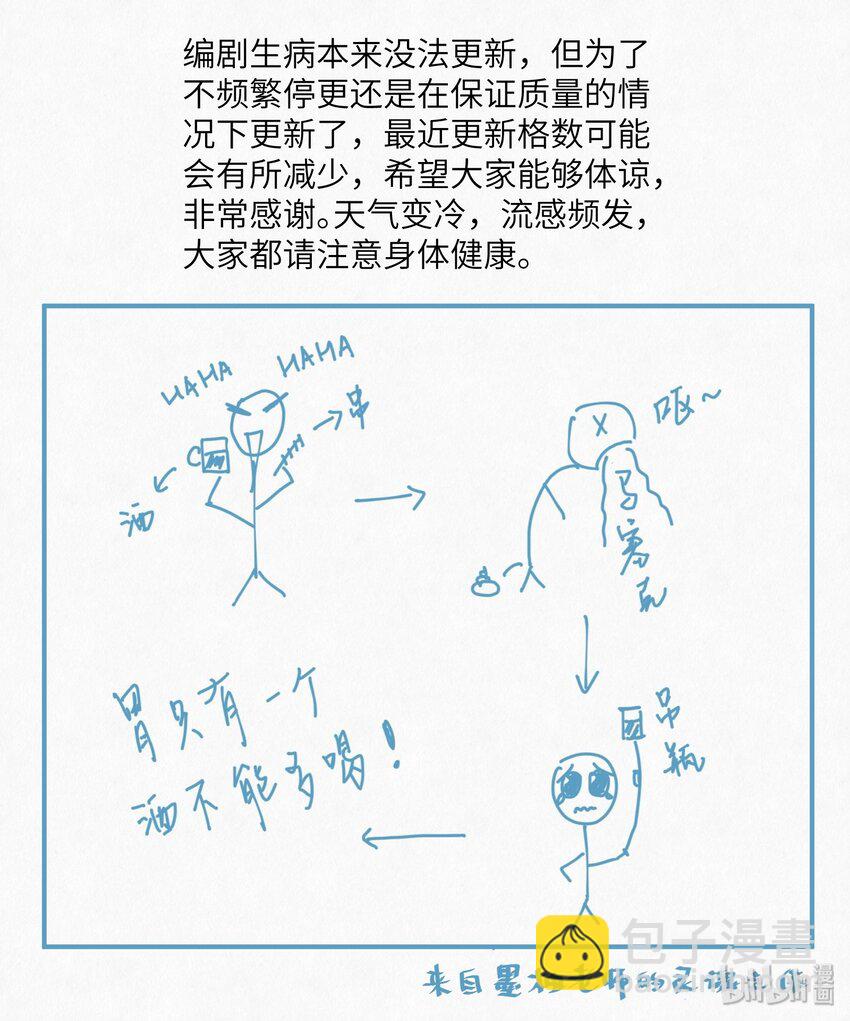 编剧生病本来没法更新，但为了
不频繁停更还是在保证质量的情
况下更新了，最近更新格数可能
会有所减少，希望大家能够体谅，
非常感谢。天气变冷，流感频发，
大家都请注意身体健康。
HAHA
HAHA
串
酒
呕~
马赛克
吊瓶
胃只有一个
酒不能多喝！
来自墨
师的灵魂
包子漫畫
baozimh
哔哩哔哩漫画